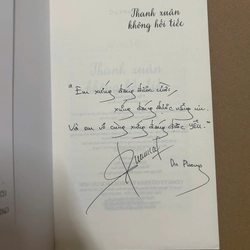 Thanh xuân
không hối tiếc
Thanh xuân
"Em xứng đáng được cười,
xứng đáng được nâng niu.
Và em vô cùng xứng đáng được yêu."
Du Phong